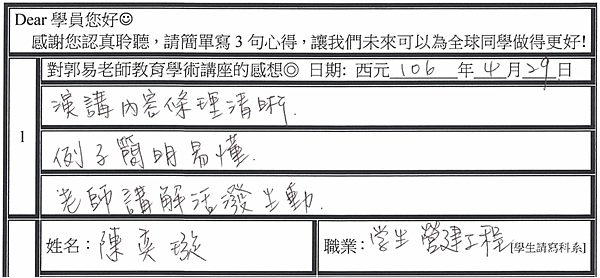 Dear 學員您好☺
感謝您認真聆聽，請簡單寫3句心得，讓我們未來可以為全球同學做得更好!
對郭易老師教育學術講座的感想◎ 日期: 西元 106 年 4 月 29 日
1
演講內容條理清晰.
例子簡明易懂.
老師講解活潑生動.
姓名：陳奕璇
職業：学生 營建工程 [學生請寫科系]